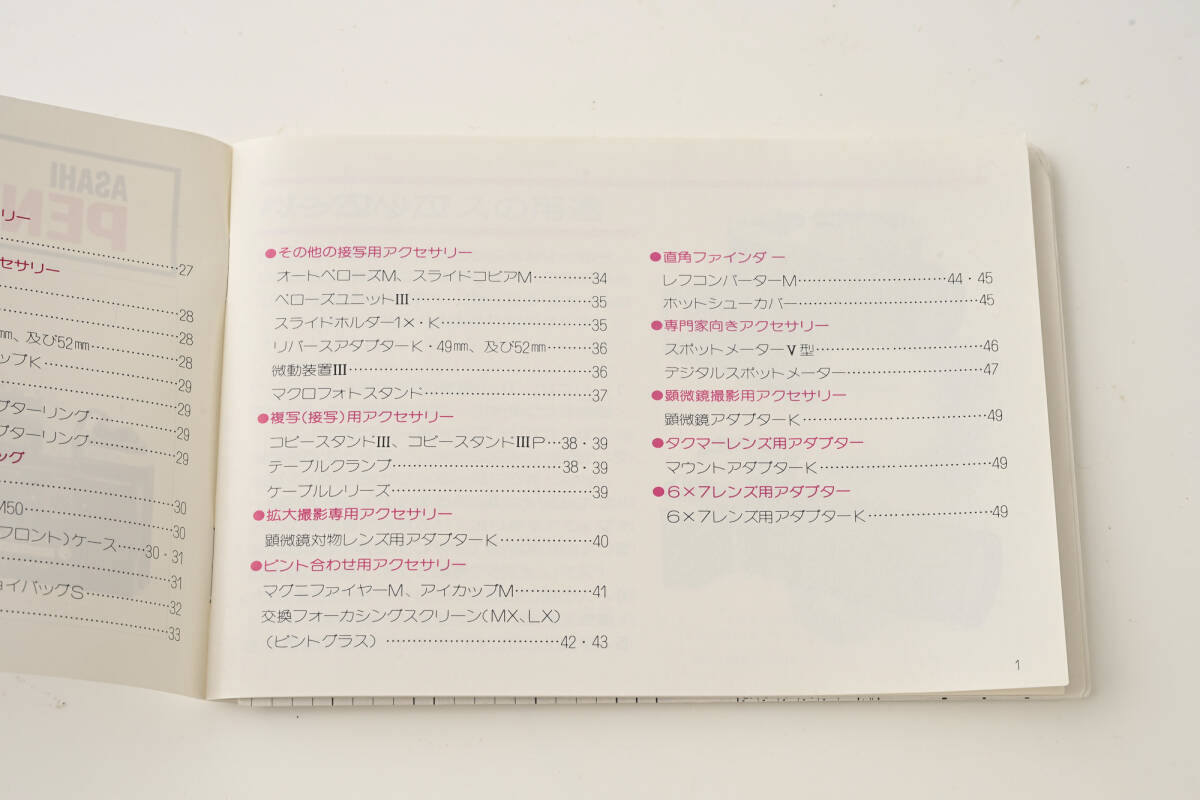 ASAHI
PEN
リー
27
セサリー
28
28
mm、及び52mm 28
ップK 29
29
プターリング 29
プターリング 29
ッグ
30
M50 30
フロント)ケース 30・31
31
ョイバッグS 32
33
●その他の接写用アクセサリー
オートベローズM、スライドコピアM 34
ベローズユニットⅢ 35
スライドホルダー1×・K 35
リバースアダプターK・49mm、及び52mm 36
微動装置Ⅲ 36
マクロフォトスタンド 37
●複写(接写)用アクセサリー
コピースタンドⅢ、コピースタンドⅢP 38・39
テーブルクランプ 38・39
ケーブルレリーズ 39
●拡大撮影専用アクセサリー
顕微鏡対物レンズ用アダプターK 40
●ピント合わせ用アクセサリー
マグニファイヤーM、アイカップM 41
交換フォーカシングスクリーン(MX、LX)
(ピントグラス) 42・43
●直角ファインダー
レフコンバーターM 44・45
ホットシューカバー 45
●専門家向きアクセサリー
スポットメーターV型 46
デジタルスポットメーター 47
●顕微鏡撮影用アクセサリー
顕微鏡アダプターK 49
●タクマーレンズ用アダプター
マウントアダプターK 49
●6×7レンズ用アダプター
6×7レンズ用アダプターK 49
1